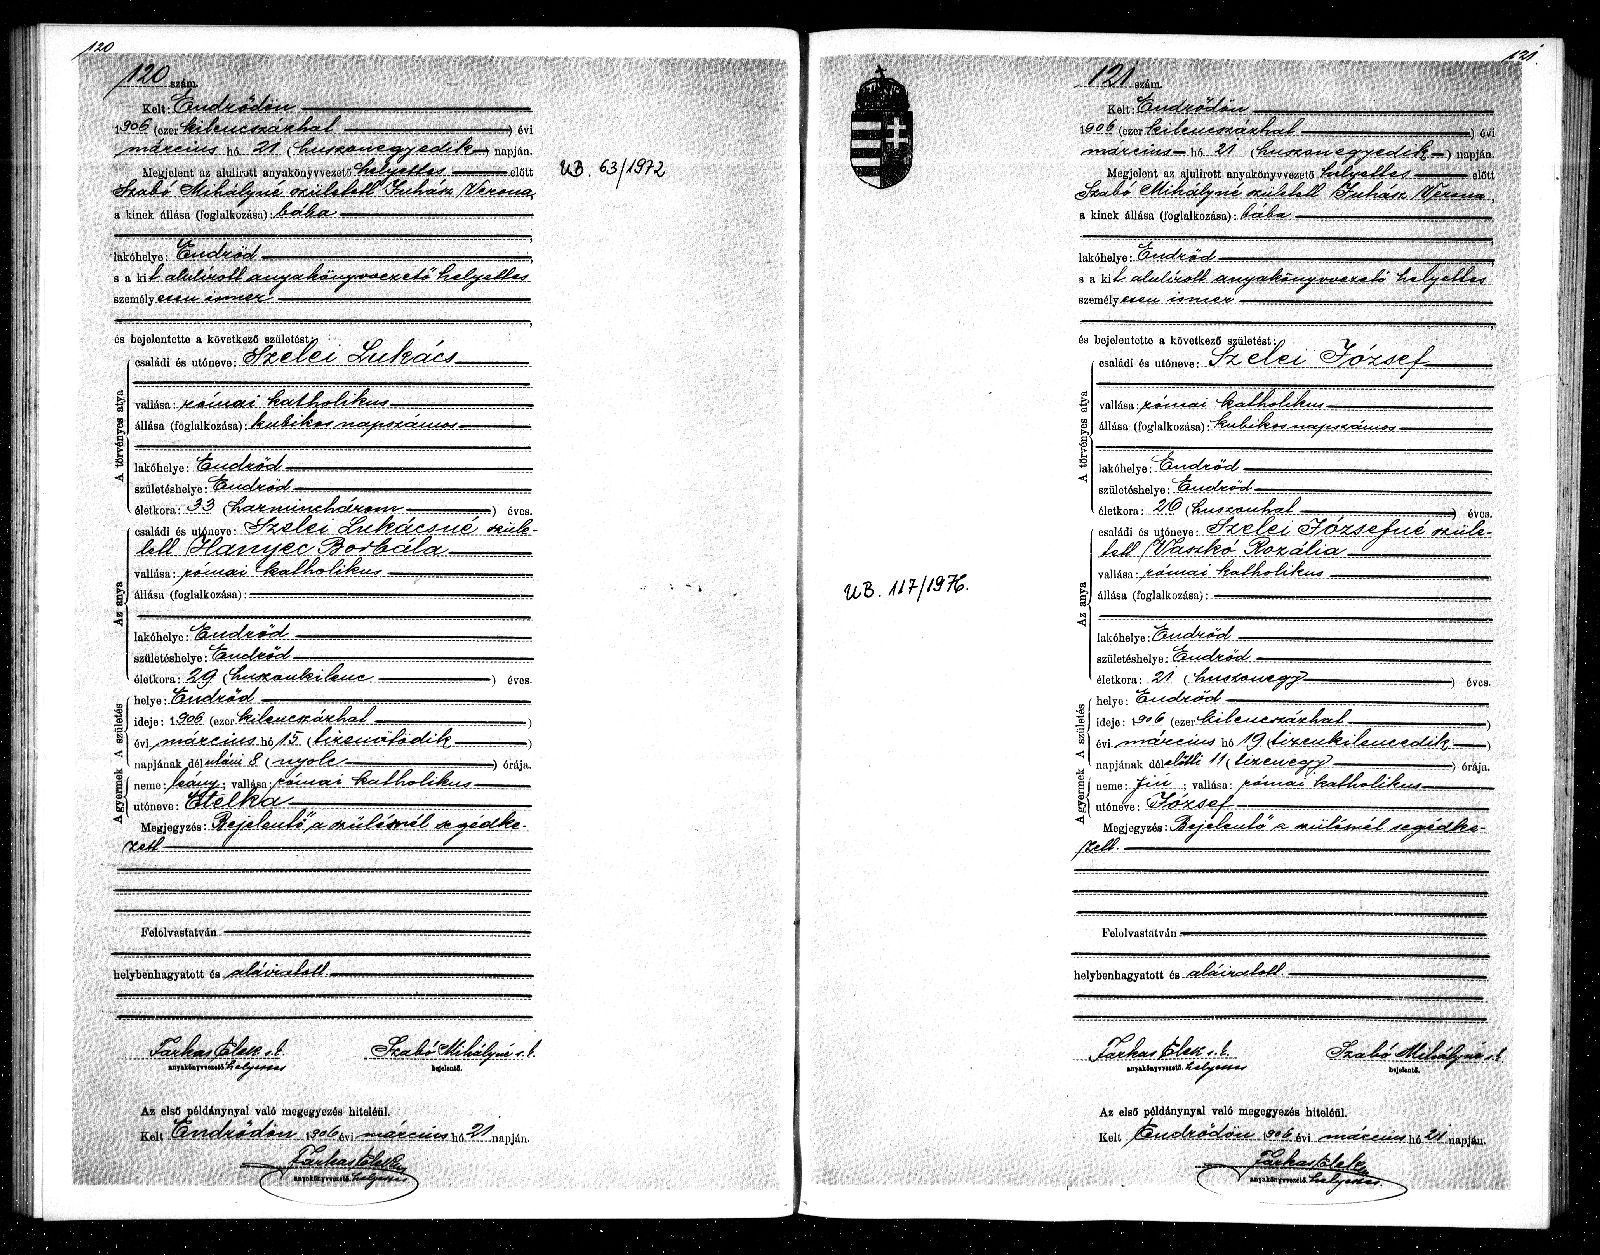 120
120 szám.
Kelt: Endrődön
1906 (ezer kilenczszázhat) évi
március hó 21 (huszonegyedik) napján.
Megjelent az alulirott anyakönyvvezető helyettes előtt
Szabó Mihályné született Juhász Verona,
a kinek állása (foglalkozása): bába
lakóhelye: Endrőd
s a kit alulirott anyakönyvvezető helyettes
személyesen ismer
és bejelentette a következő születést:
A törvényes atya
családi és utóneve: Szelei Lukács
vallása: római katholikus
állása (foglalkozása): kubikos napszámos
lakóhelye: Endrőd
születéshelye: Endrőd
életkora: 33 (harminchárom) éves.
Az anya
családi és utóneve: Szelei Lukácsné szüle-
tett Hanyec Borbála
vallása: római katholikus
állása (foglalkozása):
lakóhelye: Endrőd
születéshelye: Endrőd
életkora: 29 (huszonkilenc) éves.
A születés
helye: Endrőd
ideje: 1906 (ezer kilenczszázhat)
évi március hó 15 (tizenötödik)
napjának délutáni 8 (nyolc) órája.
A gyermek
neme: leány; vallása: római katholikus
utóneve: Etelka
Megjegyzés: Bejelentő a szülésnél segédke-
zett
Felolvastatván
helybenhagyatott és aláiratott.
Farkas Elek s. k. Szabó Mihályné s. k.
anyakönyvvezető helyettes bejelentő.
Az első példánynyal való megegyezés hiteléül.
Kelt Endrődön 1906 évi március hó 21 napján.
Farkas Elek
anyakönyvvezető helyettes
UB. 63/1972
121
121 szám.
Kelt: Endrődön
1906 (ezer kilenczszázhat) évi
március hó 21 (huszonegyedik) napján.
Megjelent az alulirott anyakönyvvezető helyettes előtt
Szabó Mihályné született Juhász Verona,
a kinek állása (foglalkozása): bába
lakóhelye: Endrőd
s a kit alulirott anyakönyvvezető helyettes
személyesen ismer
és bejelentette a következő születést:
A törvényes atya
családi és utóneve: Szelei József
vallása: római katholikus
állása (foglalkozása): kubikos napszámos
lakóhelye: Endrőd
születéshelye: Endrőd
életkora: 26 (huszonhat) éves.
Az anya
családi és utóneve: Szelei Józsefné szüle-
tett Vaskó Rozália
vallása: római katholikus
állása (foglalkozása):
lakóhelye: Endrőd
születéshelye: Endrőd
életkora: 21 (huszonegy) éves.
A születés
helye: Endrőd
ideje: 1906 (ezer kilenczszázhat)
évi március hó 19 (tizenkilencedik)
napjának délelőtti 11 (tizenegy) órája.
A gyermek
neme: fiú; vallása: római katholikus
utóneve: József
Megjegyzés: Bejelentő a szülésnél segédke-
zett.
Felolvastatván
helybenhagyatott és aláiratott.
Farkas Elek s. k. Szabó Mihályné s. k.
anyakönyvvezető helyettes bejelentő.
Az első példánynyal való megegyezés hiteléül.
Kelt Endrődön 1906 évi március hó 21 napján.
Farkas Elek
anyakönyvvezető helyettes.
UB. 117/1976.